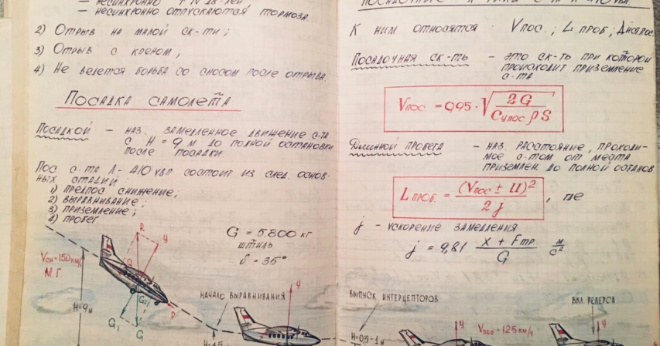 — несинхронно отпускаются тормоза.
2) Отрыв на малой ск-ти;
3) Отрыв с креном;
4) Не ведется борьба со сносом после отрыва.
Посадка самолета
Посадкой – наз. замедленное движение с-та
с H = 9 м до полной остановки
после посадки
Пос. с-та Л-410 УВП состоит из след. основ-
ных стадий:
1) предпос. снижение;
2) выравнивание;
3) приземление;
4) пробег.
G = 5800 кг
штиль
δ = 35°
Vсн = 150 км/ч
М.Г.
H=9м
R
Y
G1
G
P
начало выравнивания
К ним относятся Vпос ; Lпроб ;
Посадочная ск-ть – это ск-ть при которой
происходит приземление
с-та
Vпос = 0,95 · √ 2G / Cупос ρ S
Длиной пробега – наз. расстояние, проходи-
мое с-том от места
приземлен. до полной останов.
Lпроб = (Vпос ± U)² / 2j , где
j – ускорение замедления
j = 9,81 X + Fтр / G м/с²
выпуск интерцепторов
вкл. реверса
Y
Y
Y